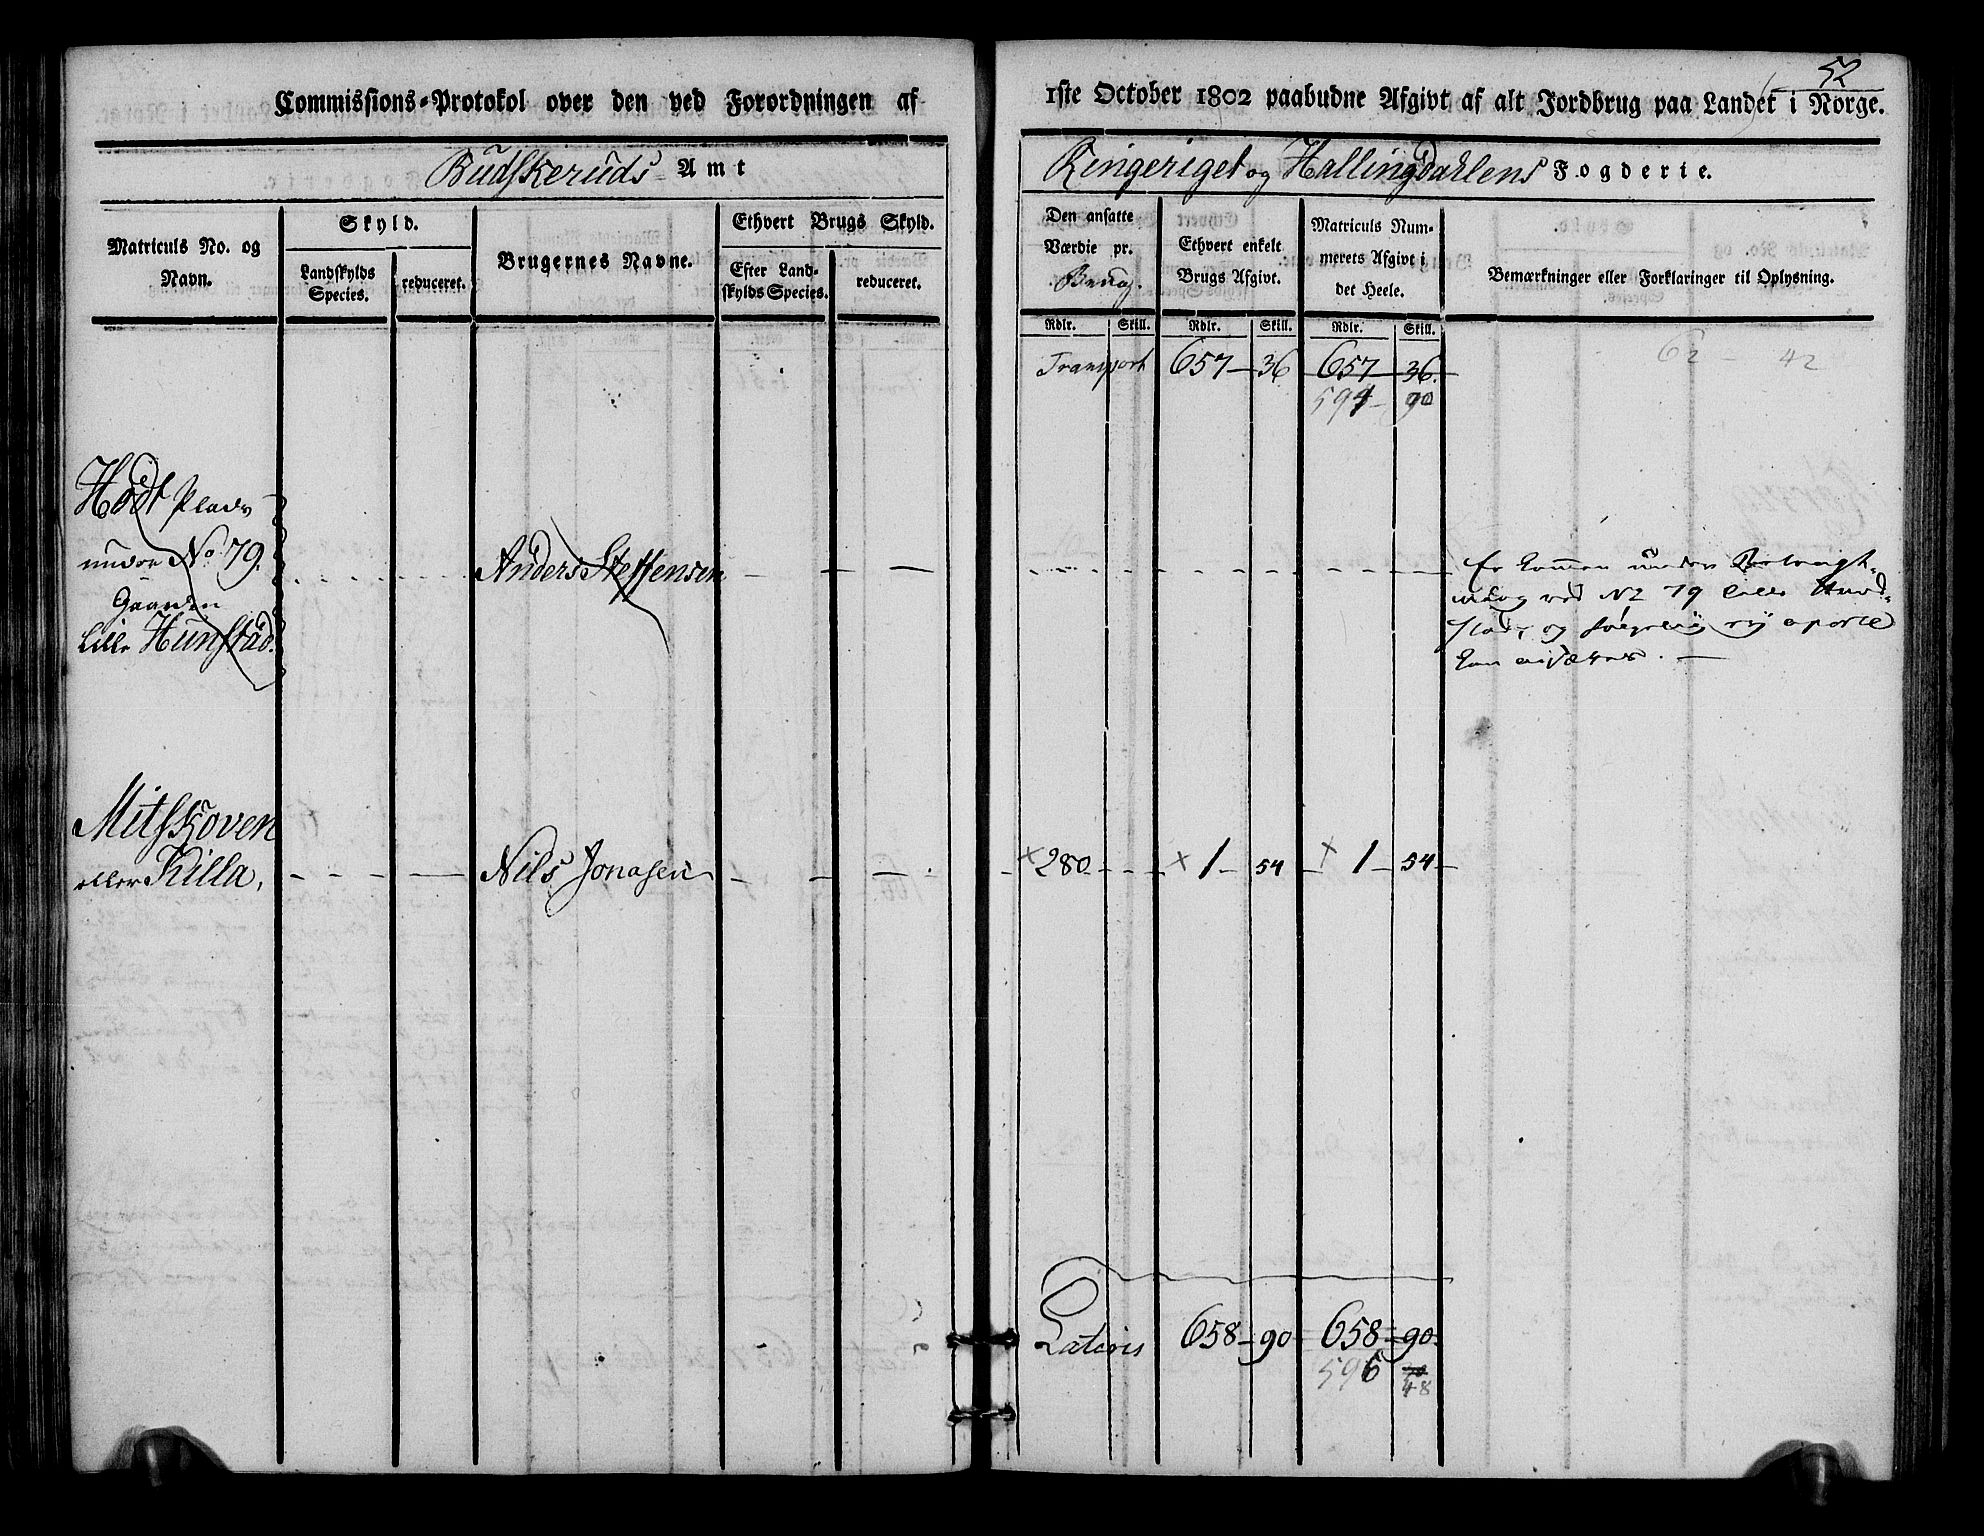 52
Commissions-Protokol over den ved Forordningen af
1ste October 1802 paabudne Afgivt af alt Jordbrug paa Landet i Norge.
Budskeruds Amt
Ringeriget og Hallingdahlens Fogderie.
Matriculs No. og Navn.
Skyld.
Landskylds Species.
reduceret.
Brugernes Navne.
Ethvert Brugs Skyld.
Efter Landskylds Species.
reduceret.
Den ansatte Værdie pr. Brug.
Ethvert enkelt Brugs Afgivt.
Matriculs Nummerets Afgivt i det Heele.
Bemærkninger eller Forklaringer til Oplysning.
Rdlr. Skill. Rdlr. Skill. Rdlr. Skill.
Transport 657 36 657 36. 62 - 42
594 90
Hødt Plads
under No 79.
Gaarden
Lille Hunstad.
Anders Steffensen
er kommen under
ved No 79 lille Hund-
stad, og følgelig ej aparte
kan ansættes.
Mitskoven
eller Killa.
Nils Jonasen
280 1 54 1 54
Lateris 658 90 658 90
596 48